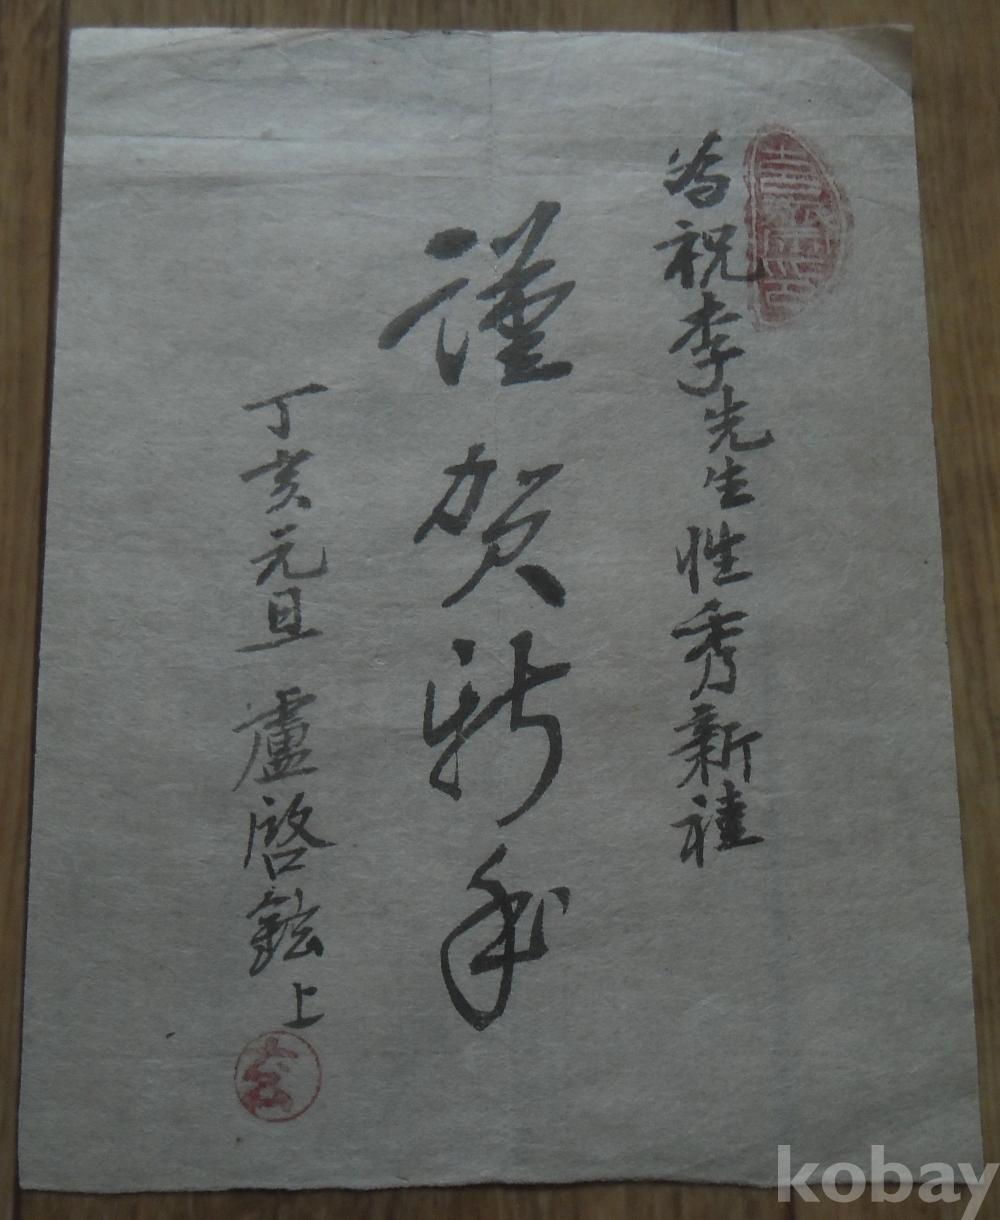 谷祝李先生性秀新禧
謹賀新年
丁亥元旦 盧啓鉉上
kobay